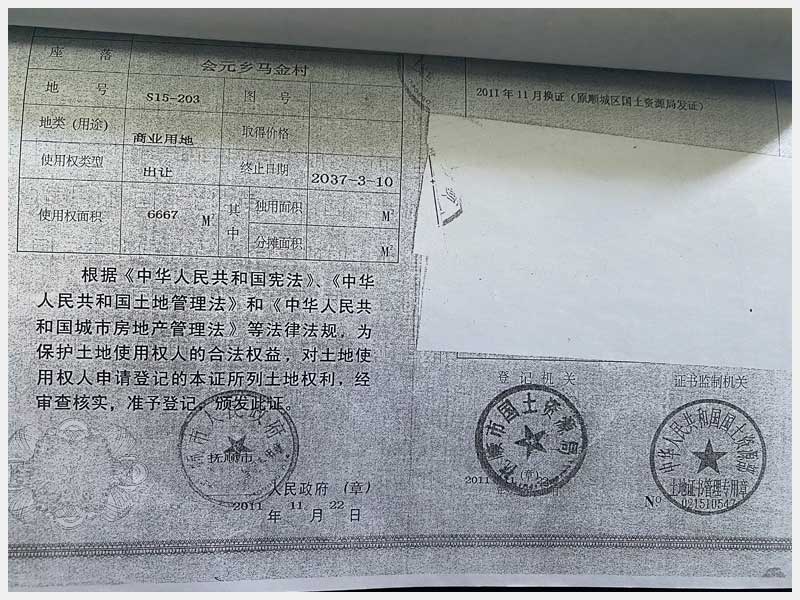 座 落 会元乡马金村
地 号 S15-203 图 号
地类（用途） 商业用地 取得价格
使用权类型 出让 终止日期 2037-3-10
使用权面积 6667 M² 其中 独用面积 M²
分摊面积 M²
根据《中华人民共和国宪法》、《中华
人民共和国土地管理法》和《中华人民共
和国城市房地产管理法》等法律法规，为
保护土地使用权人的合法权益，对土地使
用权人申请登记的本证所列土地权利，经
审查核实，准予登记，颁发此证。
抚顺市
人民政府 （章）
2011 年 11 月 22 日
2011年11月换证（原顺城区国土资源局发证）
登 记 机 关
抚顺市国土资源局
（章）
2011 11 22
证书监制机关
中华人民共和国国土资源部
土地证书管理专用章
Nº 021510547